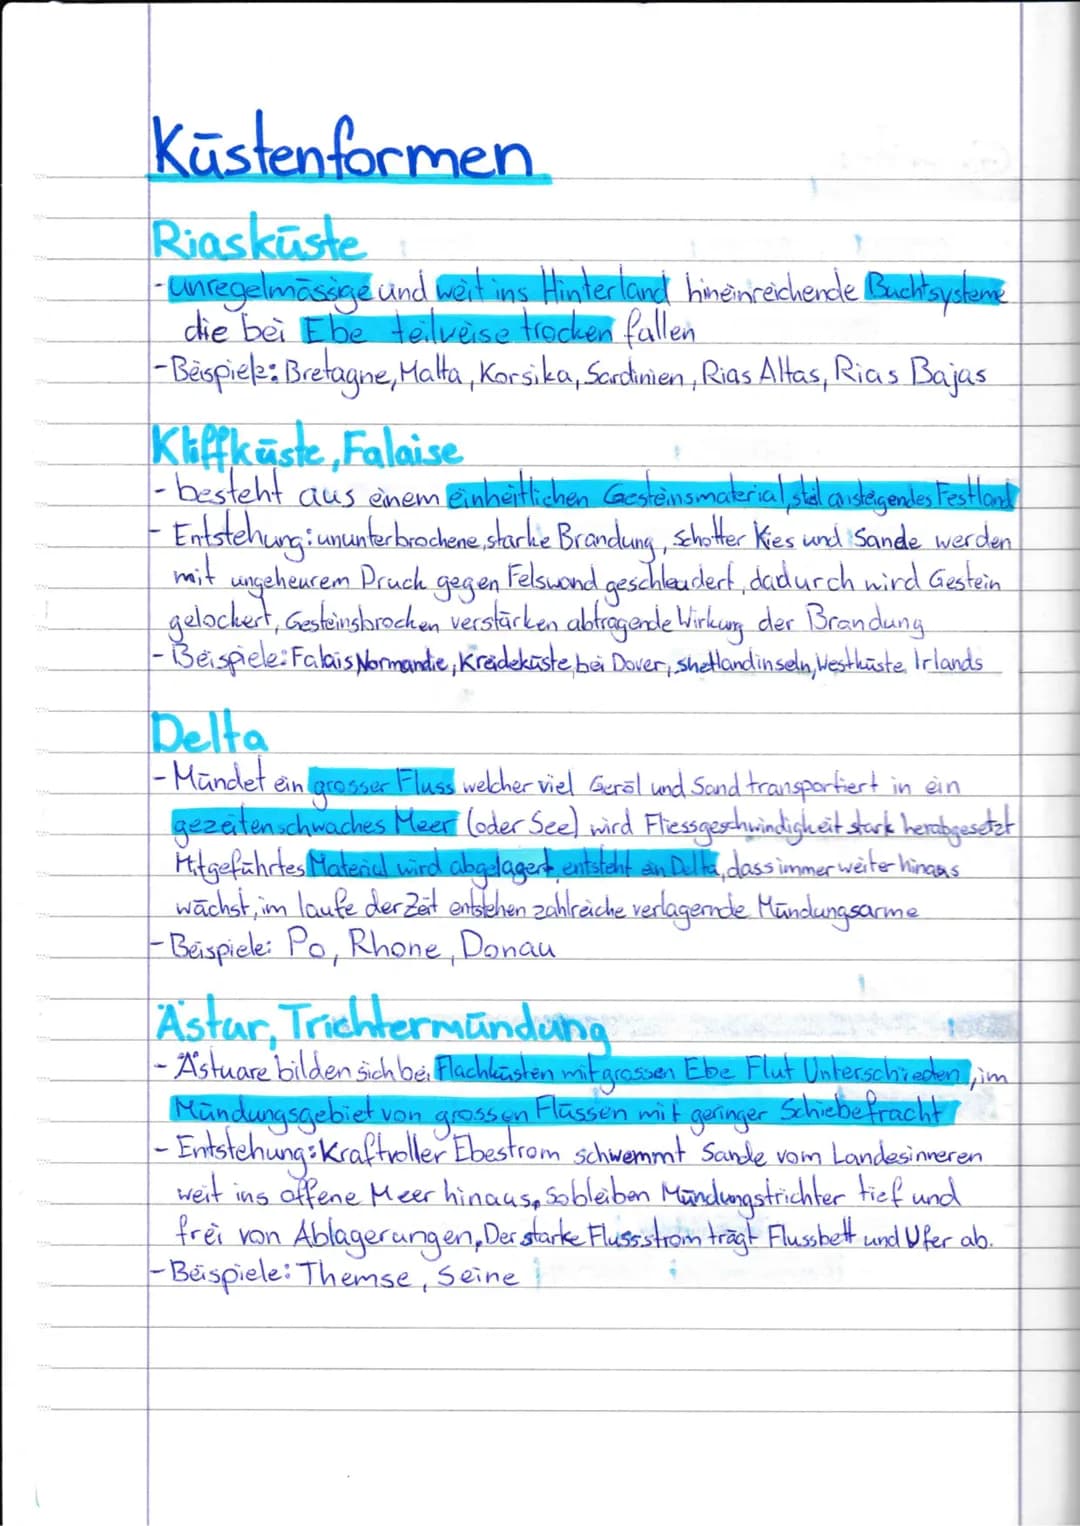 Küstenformen
Riasküste
- unregelmässige und weit ins Hinterland hineinreichende Buchtsysteme
die bei Ebe teilweise trocken fallen
- Beispiele: Bretagne, Malta, Korsika, Sardinien, Rias Altas, Rias Bajas
Kliffküste, Falaise
- besteht aus einem einheitlichen Gesteinsmaterial, steil ansteigendes Festland
- Entstehung: ununterbrochene, starke Brandung, Schotter Kies und Sande werden
mit ungeheurem Druck gegen Felswand geschleudert, dadurch wird Gestein
gelockert, Gesteinsbrocken verstärken abtragende Wirkung der Brandung
- Beispiele: Falais Normandie, Kreideküste bei Dover, Shetlandinseln, Westküste Irlands
Delta
- Mündet ein grosser Fluss welcher viel Geröl und Sand transportiert in ein
gezeitenschwaches Meer (oder See) wird Fliessgeschwindigkeit stark herabgesetzt
Mitgeführtes Material wird abgelagert, entsteht ein Delta, dass immer weiter hinaus
wächst, im laufe der Zeit entstehen zahlreiche verlagernde Mündungsarme
- Beispiele: Po, Rhone, Donau
Ästuar, Trichtermündung
- Ästuare bilden sich bei Flachküsten mit grossen Ebe Flut Unterschieden, im
Mündungsgebiet von grossen Flüssen mit geringer Schiebefracht
- Entstehung: Kraftvoller Ebestrom schwemmt Sande vom Landesinneren
weit ins offene Meer hinaus, So bleiben Mündungstrichter tief und
frei von Ablagerungen, Der starke Flussstrom trägt Flussbett und Ufer ab.
- Beispiele: Themse, Seine